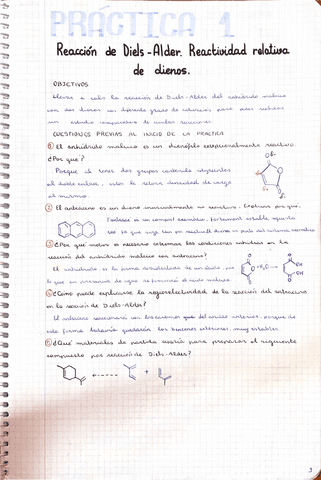 PRÁCTICA 1
Reacción de Diels-Alder. Reactividad relativa
de dienos.
OBJETIVOS
Llevar a cabo la reacción de Diels-Alder del anhídrido maleico
con dos dienos con diferente grado de para
un estudio comparativo de ambas reacciones.
CUESTIONES PREVIAS AL INICIO DE LA PRÁCTICA
① El anhídrido maleico es un dienófilo excepcionalmente reactivo.
¿Por qué?
Porque al tener dos grupos carbonilo adyacentes
al doble enlace, estos le retiran densidad de carga
al mismo.
② El antraceno es un dieno inusualmente no reactivo. Explique por qué.
Antraceno es un compuesto aromático, fuertemente estable
③ ¿Por qué motivo es necesario extremar las condiciones anhidras en la
reacción del anhídrido maleico con antraceno?
El anhídrido es la forma deshidratada de un ácido, por
lo que en presencia de agua se formará el ácido maleico.
+H₂O
OH
OH
④ ¿Cómo puede explicarse la regioselectividad de la reacción del antraceno
en la reacción de Diels-Alder?
El antraceno reaccionará con los carbonos del anillo interior, porque de
esta forma quedarán los bencenos exteriores, muy estables.
⑤ ¿Qué materiales de partida usaría para preparar el siguiente
compuesto por reacción de Diels-Alder?
+
3